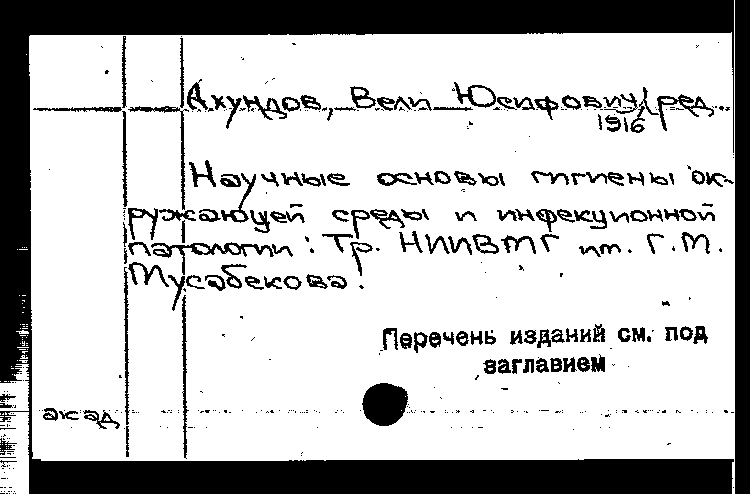 Ахундов, Вели Юсифович, ред.
1916
Научные основы гигиены ок-
ружающей среды и инфекционной
патологии: Тр. НИИВМГ им. Г.М.
Мусабекова.
Перечень изданий см. под
заглавием
акад